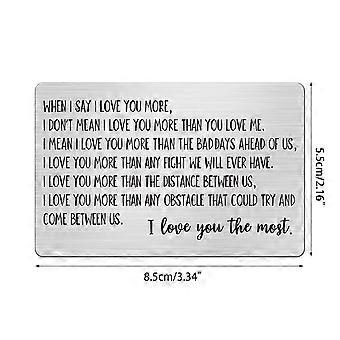 WHEN I SAY I LOVE YOU MORE,
I DON'T MEAN I LOVE YOU MORE THAN YOU LOVE ME.
I MEAN I LOVE YOU MORE THAN THE BAD DAYS AHEAD OF US,
I LOVE YOU MORE THAN ANY FIGHT WE WILL EVER HAVE.
I LOVE YOU MORE THAN THE DISTANCE BETWEEN US,
I LOVE YOU MORE THAN ANY OBSTACLE THAT COULD TRY AND
COME BETWEEN US.
I love you the most.
5.5cm/2.16"
8.5cm/3.34"